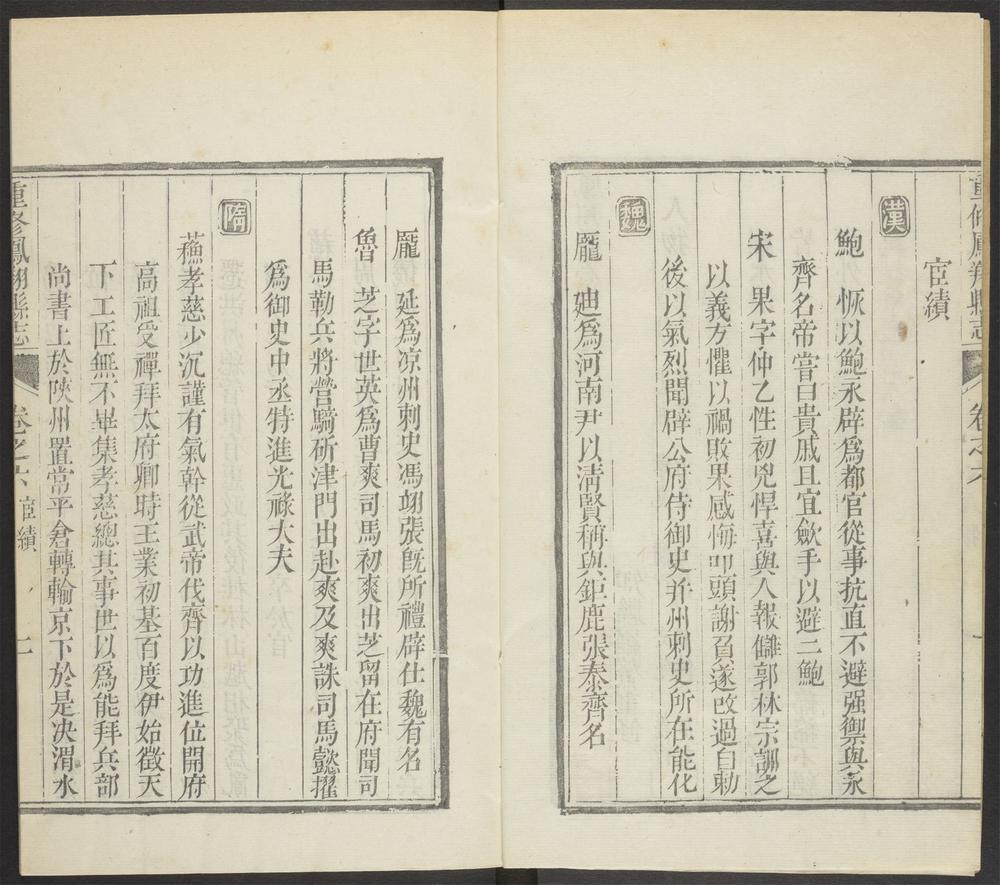 重修鳳翔縣志
卷之六
宦績
漢
鮑　恢以鮑永辟爲都官從事抗直不避强禦與永
齊名帝嘗曰貴戚且宜歛手以避二鮑
宋　果字仲乙性初兇悍喜與人報讎郭林宗訓之
以義方懼以禍敗果感悔叩頭謝召遂改過自勅
後以氣烈聞辟公府侍御史幷州刺史所在能化
魏
龐　廸爲河南尹以淸賢稱與鉅鹿張泰齊名
龐　延爲凉州刺史馮翊張旣所禮辟仕魏有名
魯　芝字世英爲曹爽司馬初爽出芝留在府聞司
馬勒兵將營騎斫津門出赴爽及爽誅司馬懿擢
爲御史中丞特進光祿大夫
隋
蘓孝慈少沉謹有氣幹從武帝伐齊以功進位開府
高祖受禪拜太府卿時王業初基百度伊始徵天
下工匠無不畢集孝慈總其事世以爲能拜兵部
尚書上於陜州置常平倉轉輸京下於是决渭水
重修鳳翔縣志
卷之六　宦績
一